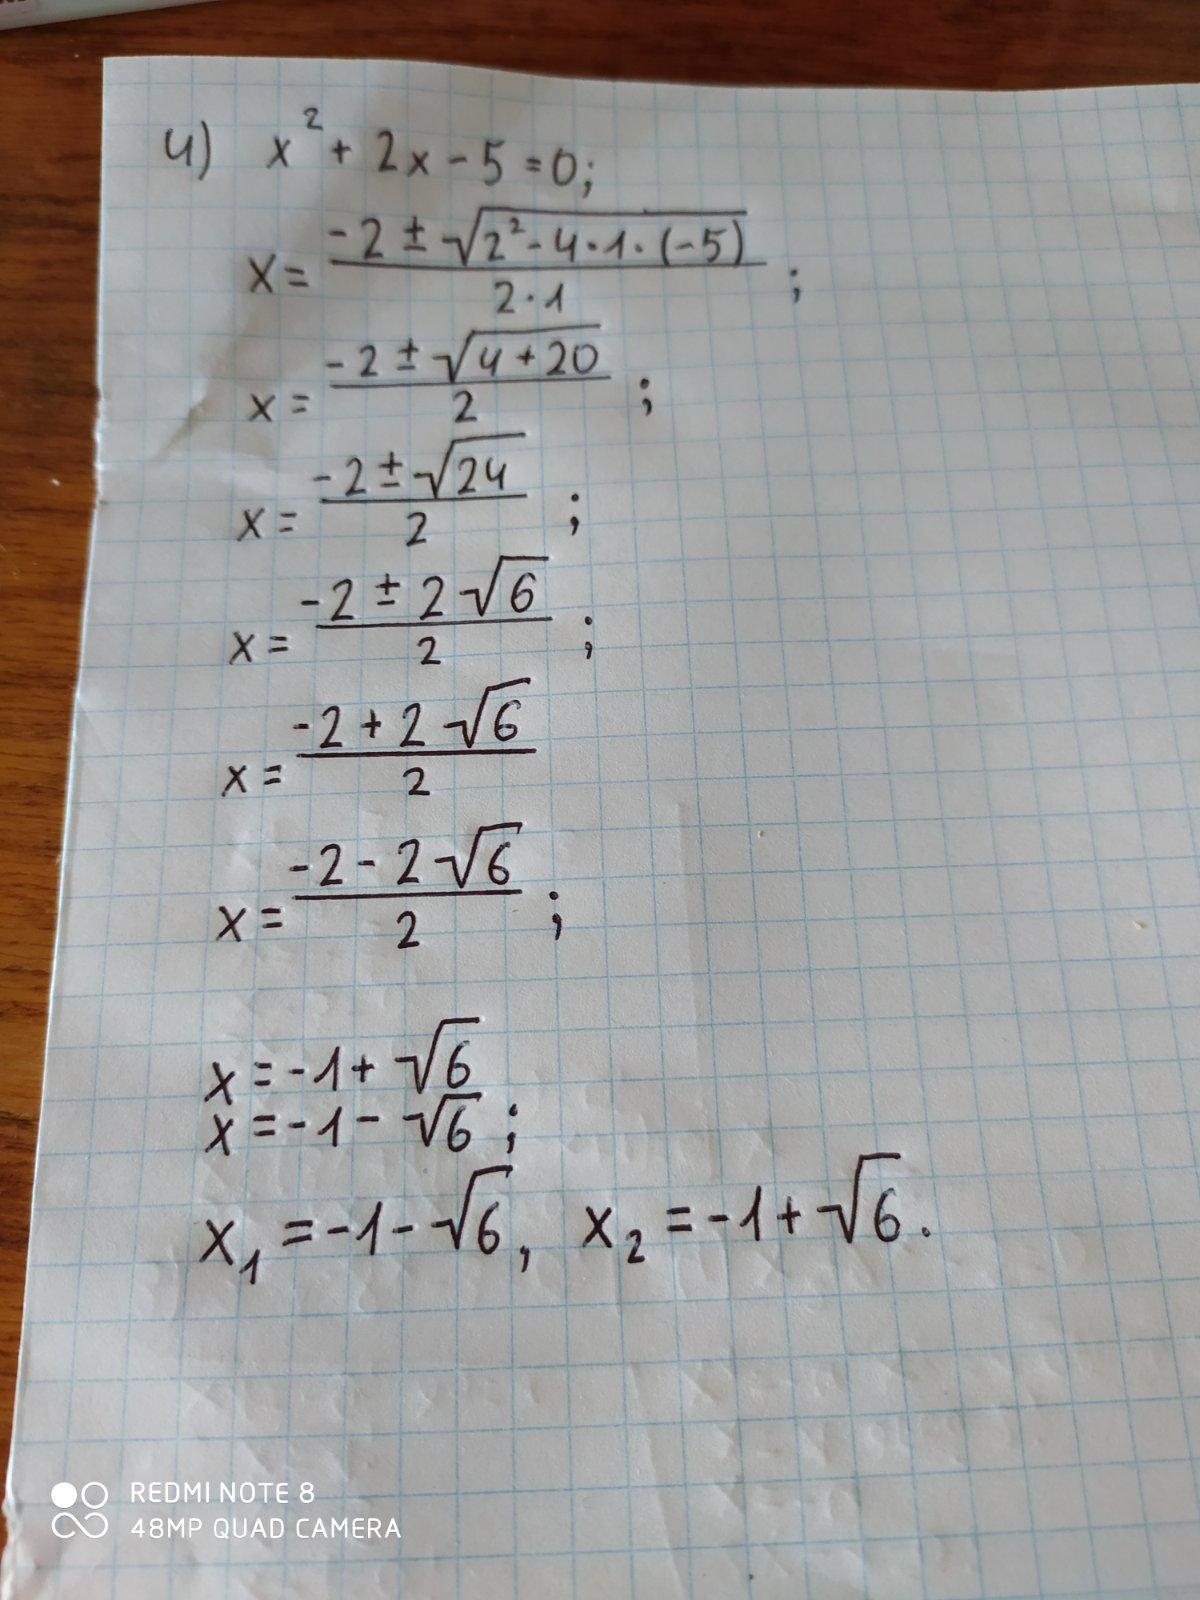 4) x² + 2x - 5 = 0;
x = (-2 ± √(2² - 4·1·(-5))) / (2·1) ;
x = (-2 ± √(4 + 20)) / 2 ;
x = (-2 ± √24) / 2 ;
x = (-2 ± 2√6) / 2 ;
x = (-2 + 2√6) / 2
x = (-2 - 2√6) / 2 ;
x = -1 + √6
x = -1 - √6 ;
x₁ = -1 - √6, x₂ = -1 + √6.
REDMI NOTE 8
48MP QUAD CAMERA